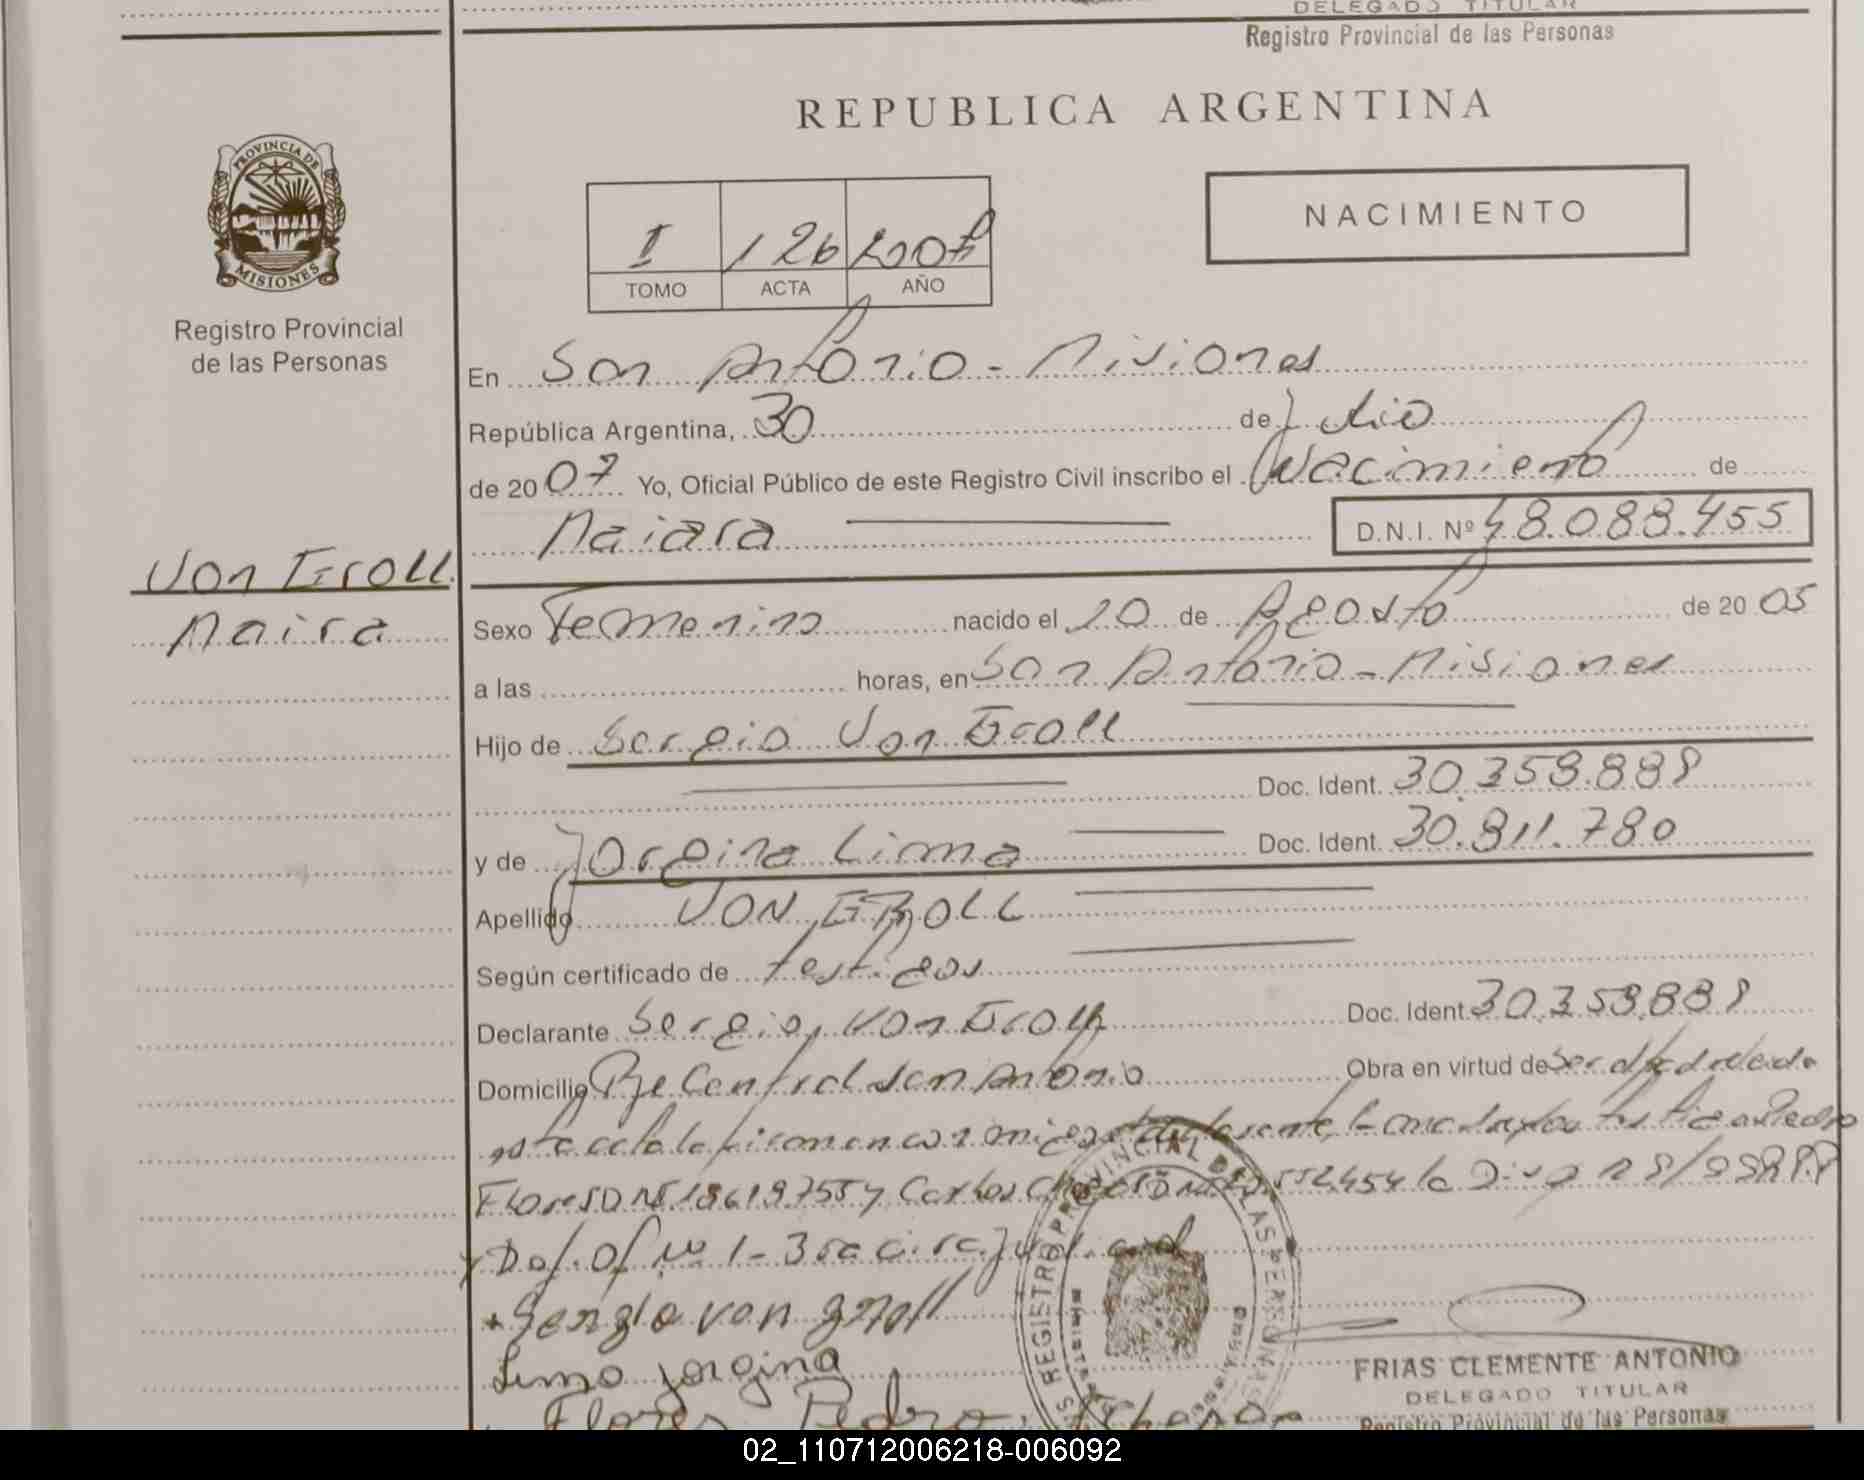 DELEGADO TITULAR
Registro Provincial de las Personas
REPUBLICA ARGENTINA
PROVINCIA DE MISIONES
Registro Provincial
de las Personas
I 126 2007
TOMO ACTA AÑO
NACIMIENTO
En San Antonio - Misiones
República Argentina, 30 de Julio
de 2007 Yo, Oficial Público de este Registro Civil inscribo el Nacimiento de
Naiara D.N.I. Nº 48.088.455
Von Groll
Naira
Sexo Femenino nacido el 20 de Agosto de 2005
a las horas, en San Antonio - Misiones
Hijo de Sergio Von Groll
Doc. Ident. 30.358.888
y de Jorgina Lima Doc. Ident. 30.811.780
Apellido VON GROLL
Según certificado de testigos
Declarante Sergio Von Groll Doc. Ident. 30.358.888
Domicilio Pje Central San Antonio Obra en virtud de ser
este acta la firman conmigo el declarante, la madre y los testigos Pedro
Flores y Carlos
y Def. Of. Nº 1 - 3ra circ. Judicial
Sergio von groll
Lima jorgina
Flores Pedro
REGISTRO PROVINCIAL DE LAS PERSONAS
FRIAS CLEMENTE ANTONIO
DELEGADO TITULAR
Registro Provincial de las Personas
02_110712006218-006092